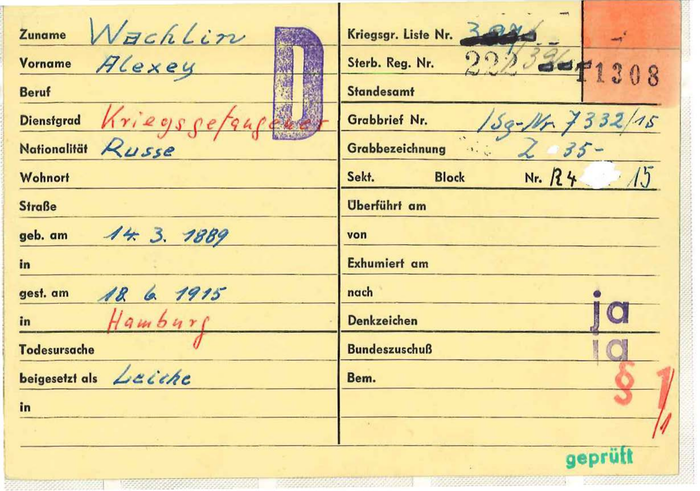 Zuname Wachlin
Vorname Alexey
Beruf
Dienstgrad Kriegsgefangener
Nationalität Russe
Wohnort
Straße
geb. am 14. 3. 1889
in
gest. am 18. 6. 1915
in Hamburg
Todesursache
beigesetzt als Leiche
in
D
Kriegsgr. Liste Nr.
Sterb. Reg. Nr. 222 11308
Standesamt
Grabbrief Nr. 7332/15
Grabbezeichnung Z 35-
Sekt. Block Nr. R4 15
Überführt am
von
Exhumiert am
nach
Denkzeichen ja
Bundeszuschuß ja
Bem. § 1/1
geprüft